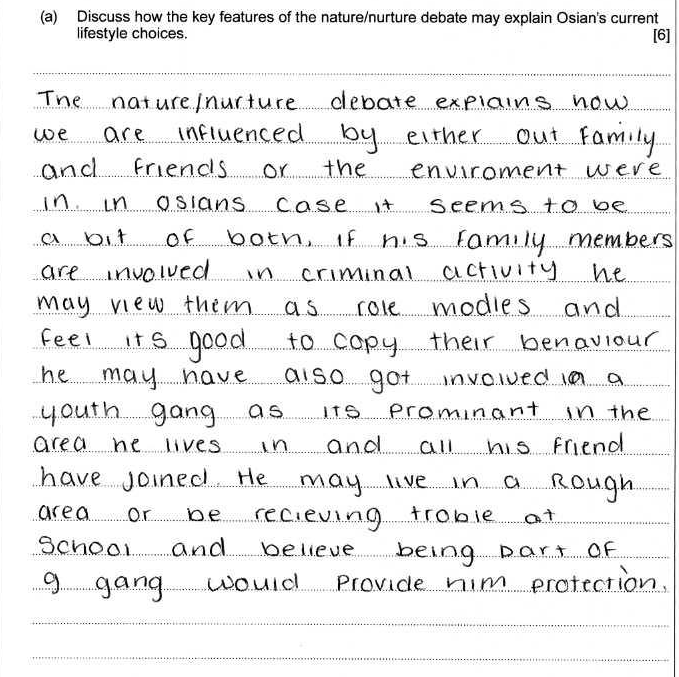 (a) Discuss how the key features of the nature/nurture debate may explain Osian's current
lifestyle choices. [6]
The nature/nurture debate explains how
we are influenced by either out family
and friends or the enviroment were
in. in osians case it seems to be
a bit of both, if his family members
are involved in criminal activity he
may view them as role modles and
feel its good to copy their behaviour
he may have also got involved in a
youth gang as its prominant in the
area he lives in and all his friend
have joined. He may live in a Rough
area or be recieving troble at
school and believe being part of
g gang would provide him protection.